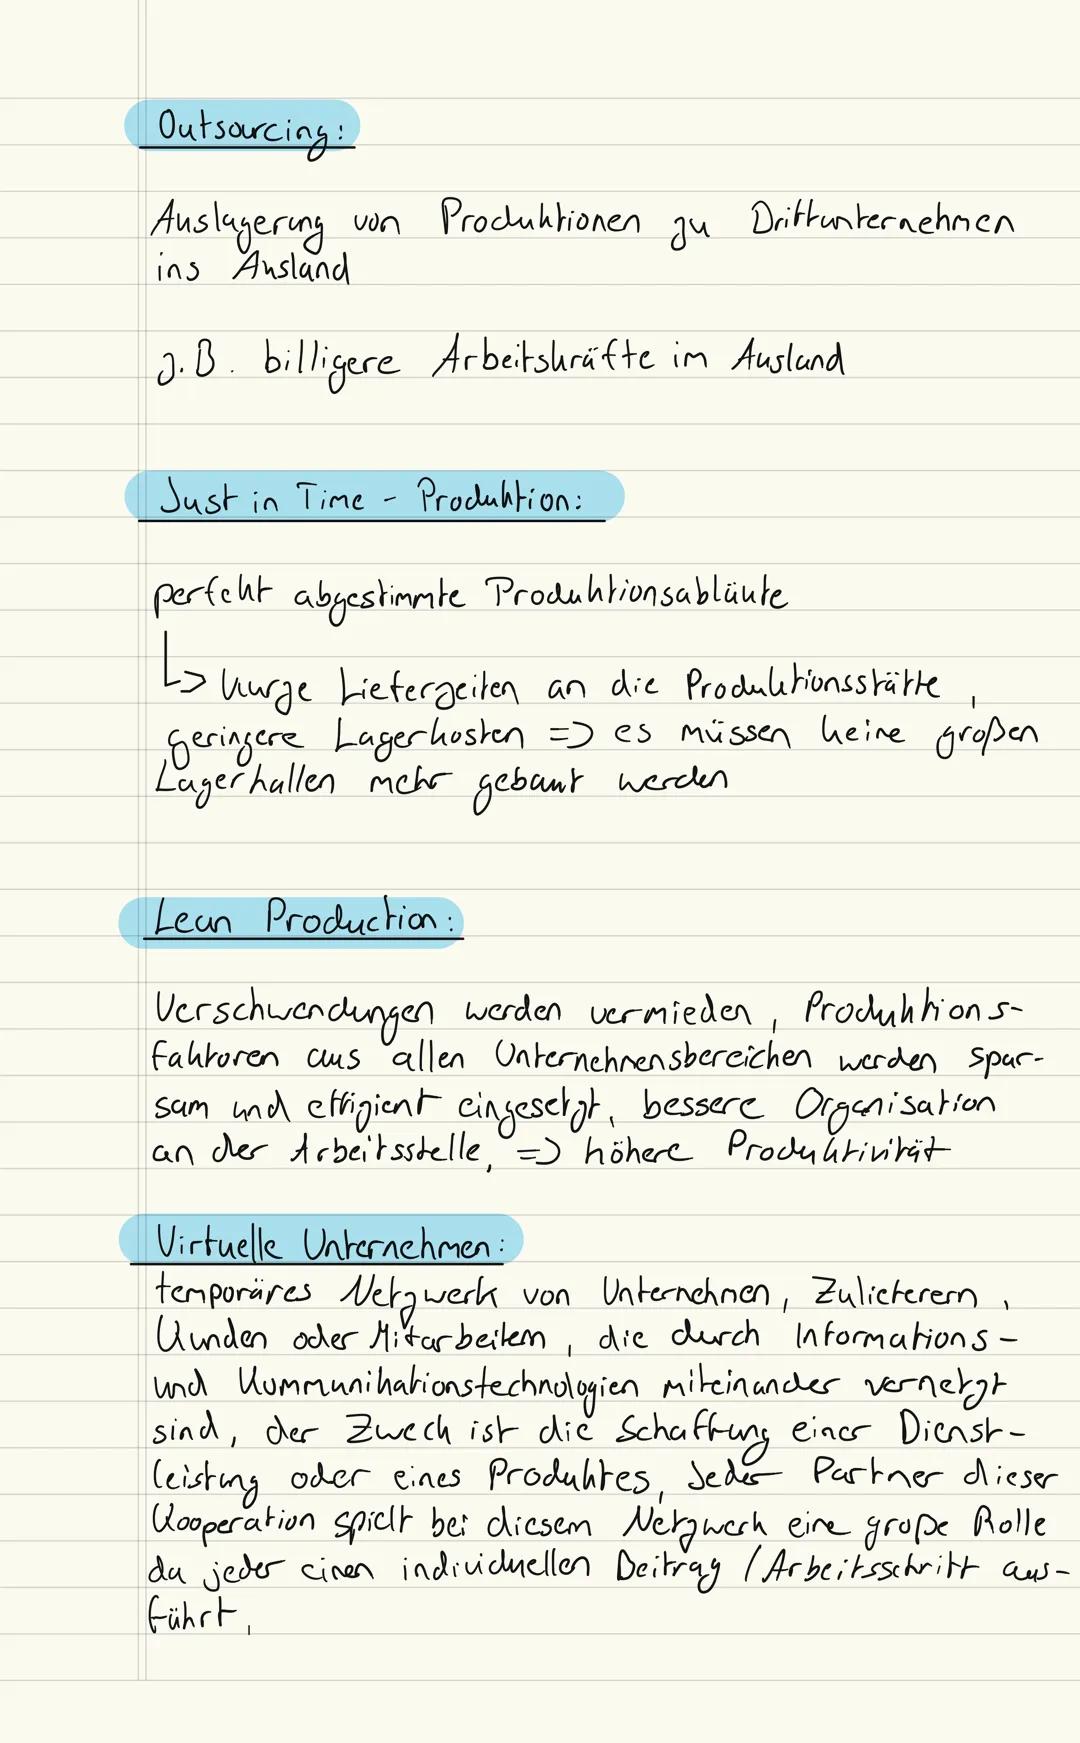 Outsourcing:
Auslagerung von Produktionen zu Drittunternehmen
ins Ausland
z.B. billigere Arbeitskräfte im Ausland
Just in Time - Produktion:
perfekt abgestimmte Produktionsabläufe
↳ kurze Lieferzeiten an die Produktionsstätte,
geringere Lagerkosten => es müssen keine großen
Lagerhallen mehr gebaut werden
Lean Production:
Verschwendungen werden vermieden, Produktions-
faktoren aus allen Unternehmensbereichen werden spar-
sam und effizient eingesetzt, bessere Organisation
an der Arbeitsstelle, => höhere Produktivität
Virtuelle Unternehmen:
temporäres Netzwerk von Unternehmen, Zulieferern,
Kunden oder Mitarbeitern, die durch Informations-
und Kommunikationstechnologien miteinander vernetzt
sind, der Zweck ist die Schaffung einer Dienst-
leistung oder eines Produktes, Jeder Partner dieser
Kooperation spielt bei diesem Netzwerk eine große Rolle
da jeder einen individuellen Beitrag / Arbeitsschritt aus-
führt,